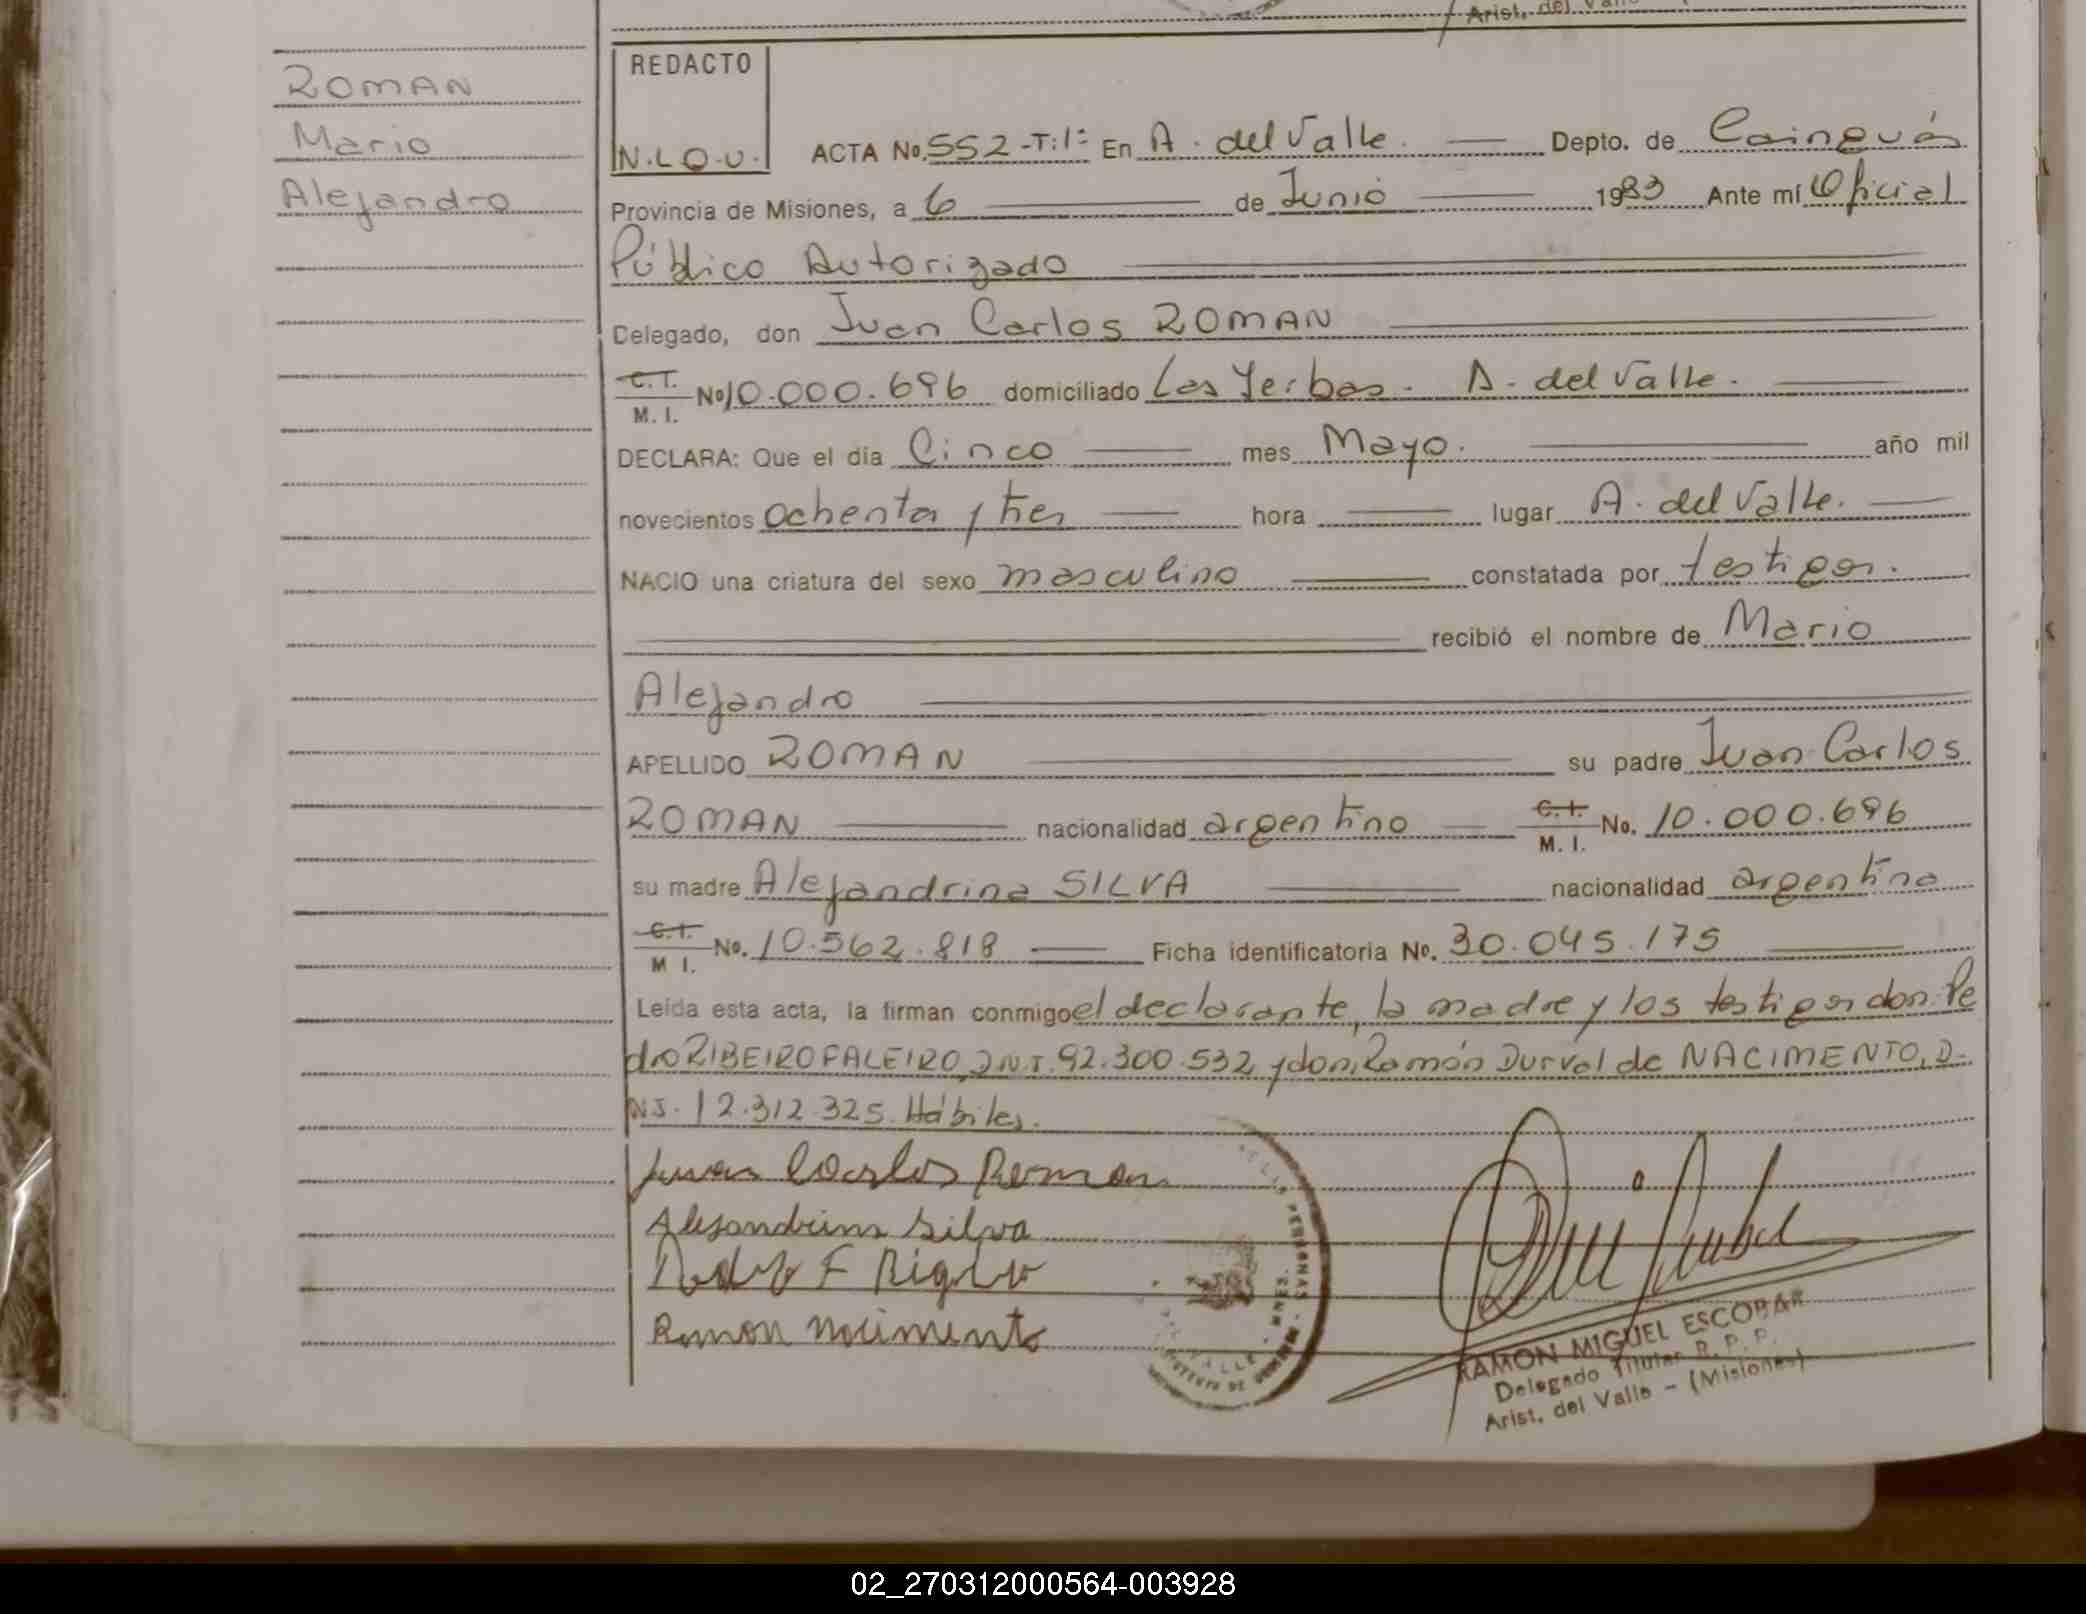 Arist. del Valle
ROMAN
Mario
Alejandro
REDACTO
N.L.O.V.
ACTA No. 552-T:1º En A. del Valle. Depto. de Cainguás
Provincia de Misiones, a 6 de Junio 1983 Ante mí Oficial
Público Autorizado
Delegado, don Juan Carlos ROMAN
C.I. M. I. No 10.000.696 domiciliado Las Yerbas. A. del Valle.
DECLARA: Que el día Cinco mes Mayo. año mil
novecientos ochenta y tres hora lugar A. del Valle.
NACIO una criatura del sexo masculino constatada por testigos.
recibió el nombre de Mario
Alejandro
APELLIDO ROMAN su padre Juan Carlos
ROMAN nacionalidad argentino C.I. M. I. No. 10.000.696
su madre Alejandrina SILVA nacionalidad argentina
C.I. M I. No. 10.562.818 Ficha identificatoria No. 30.045.175
Leída esta acta, la firman conmigo el declarante, la madre y los testigos don Pe
dro RIBEIRO FALEIRO, D.N.I. 92.300.532 y don Ramón Durval de NACIMENTO, D.
N.I. 12.312.325. Hábiles.
Juan Carlos Roman
Alejandrina Silva
Ramon Nacimento
RAMON MIGUEL ESCOBAR
Delegado Titular R. P. P.
Arist. del Valle - (Misiones)
02_270312000564-003928